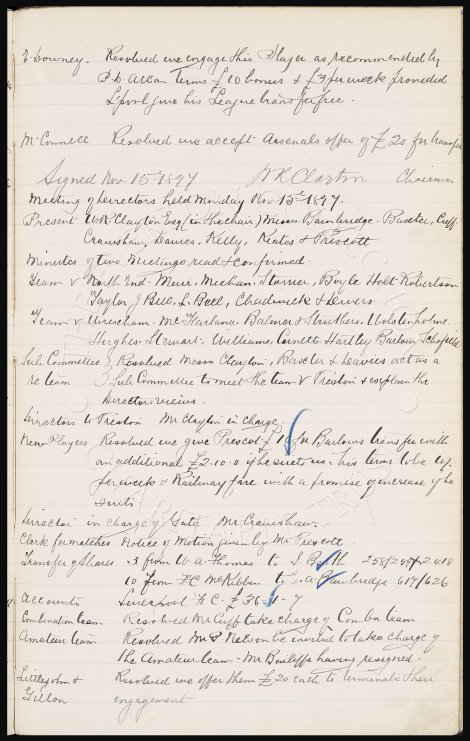 E. Downey. Resolved we engage this Player as recommended by
terms £10 bonus & £3 per week provided
L'pool give his League transfer free.
McConnell Resolved we accept Arsenals offer of £20 for transfer
Signed Nov 15th 1897 W R Clayton Chairman
Meeting of Directors held Monday Nov 15th 1897.
Present W.R. Clayton Esq (in the chair) Messrs Bainbridge. Baxter, Cuff
Cranshaw, Davies, Kelly, Keates & Prescott
Minutes of two Meetings read & confirmed.
Team v North End. Muir, Meehan. Storrier, Boyle Holt Robertson
Taylor J Bell, L. Bell, Chadwick & Divers
Team v Wrexham. McFarlane. Balmer & Struthers. Wolstenholme.
Hughes. Stewart. Williams, Barlow Schofield
Sub Committee } Resolved Messrs Clayton, Baxter & Davies act as a
re team } Sub Committee to meet the team v Preston & explain the
Directors views.
Directors to Preston Mr Clayton in charge.
New Players Resolved we give Prescot for Barlows transfer with
an additional £2-10-0 if he suits us. his terms to be
per week & Railway fare with a promise of increase if he
suits
Director in charge of Gate Mr Cranshaw.
Clerk for matches Notice of Motion given by Mr Prescott
Transfer of Shares 3 from W A Thomas to
10 from McKibben to Bainbridge 617/626
Accounts Liverpool F.C.
Combination team Resolved Mr Cuff take charge of Comb'n team
Amateur team Resolved Nelson be invited to take charge of
the Amateur team - Mr Bailiffe having resigned.
Littlejohn & Resolved we offer them £20 each to terminate their
Gillon engagement